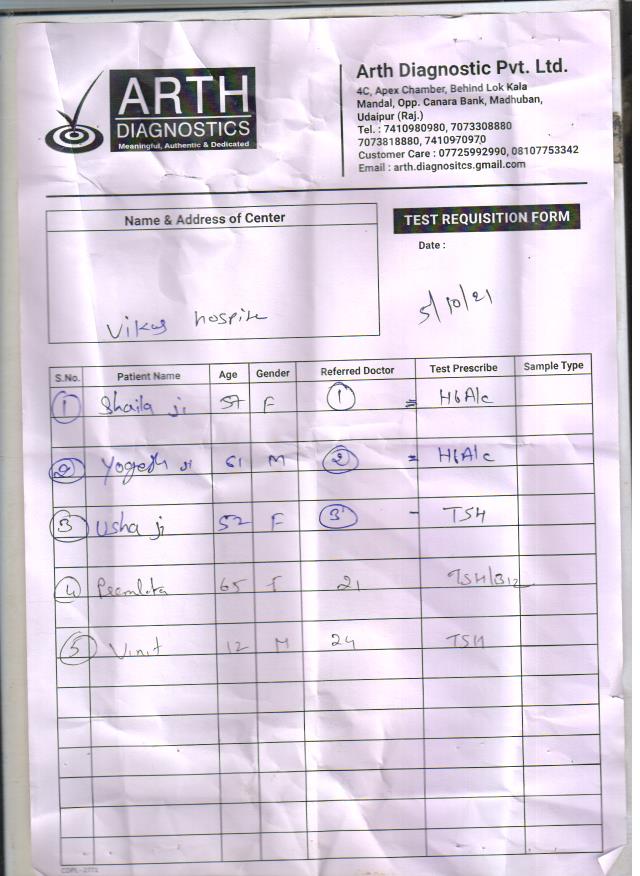 ARTH
DIAGNOSTICS
Meaningful, Authentic & Dedicated
Arth Diagnostic Pvt. Ltd.
4C, Apex Chamber, Behind Lok Kala
Mandal, Opp. Canara Bank, Madhuban,
Udaipur (Raj.)
Tel. : 7410980980, 7073308880
7073818880, 7410970970
Customer Care : 07725992990, 08107753342
Email : arth.diagnositcs.gmail.com
Name & Address of Center
TEST REQUISITION FORM
Date :
5/10/21
Vikas hospite
S.No. Patient Name Age Gender Referred Doctor Test Prescribe Sample Type
1 Shaila ji 57 F 1 = HbA1c
2 Yogesh ji 61 M 2 = HbA1c
3 Usha ji 52 F 3 - TSH
4 65 F 21 TSH/B12
5 Vinit 12 M 24 TSH